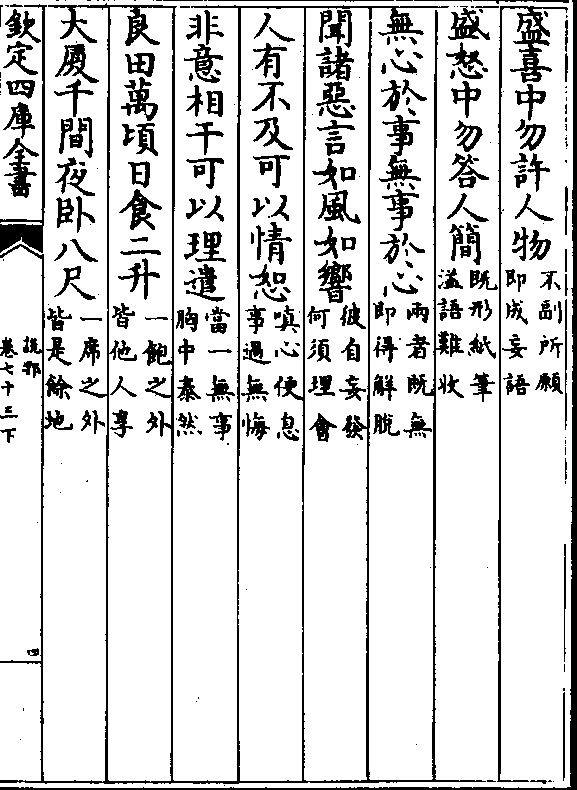 盛喜中勿許人物不副所願即成妄語
盛怒中勿答人簡既形紙筆溢語難收
無心於事無事於心兩者既無即得解脫
聞諸惡言如風如響彼自妄發何須理會
人有不及可以情恕嗔心便息事過無悔
非意相干可以理遣當一無事胸中泰然
良田萬頃日食二升一飽之外皆他人享
大厦千間夜卧八尺一席之外皆是餘地
欽定四庫全書
說郛
卷七十三下
四